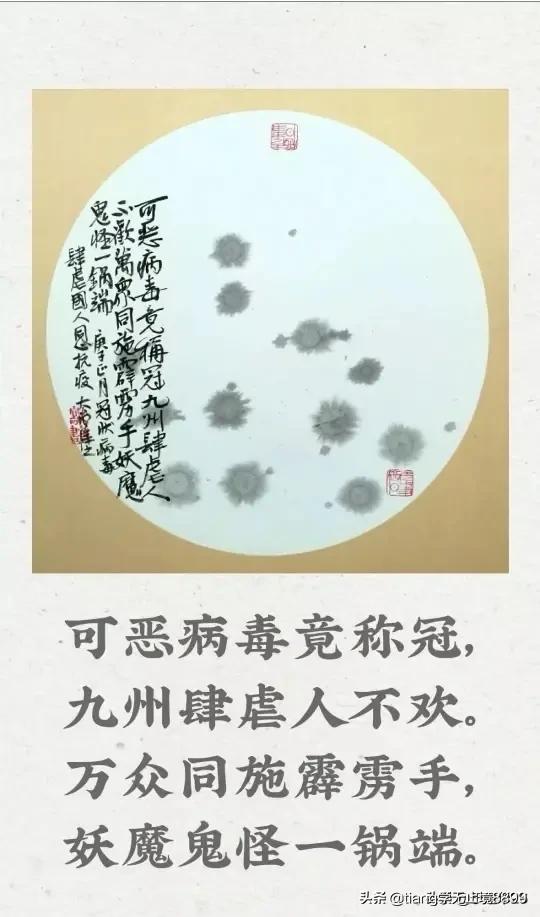 可恶病毒竟稱冠九州肆虐人
不歡萬眾同施霹雳手妖魔
鬼怪一鍋端 庚子正月冠狀病毒
肆虐國人同抗疫
可恶病毒竟称冠,
九州肆虐人不欢。
万众同施霹雳手,
妖魔鬼怪一锅端。
头条